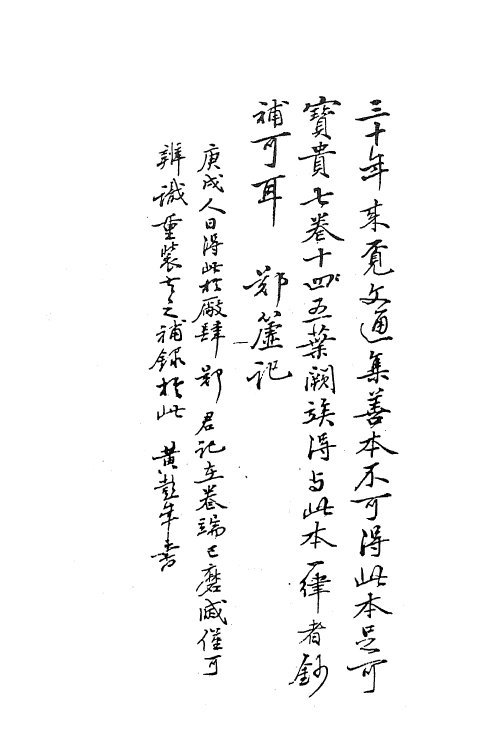 三十年来覓文通集善本不可得此本足可
寶貴七卷十四五葉闕俟得与此本一律者鈔
補可耳　鄭簠記
庚戌人日得此於廠肆鄭君記在卷端已磨滅僅可
辨識重裝去之補録於此　黄彭年書